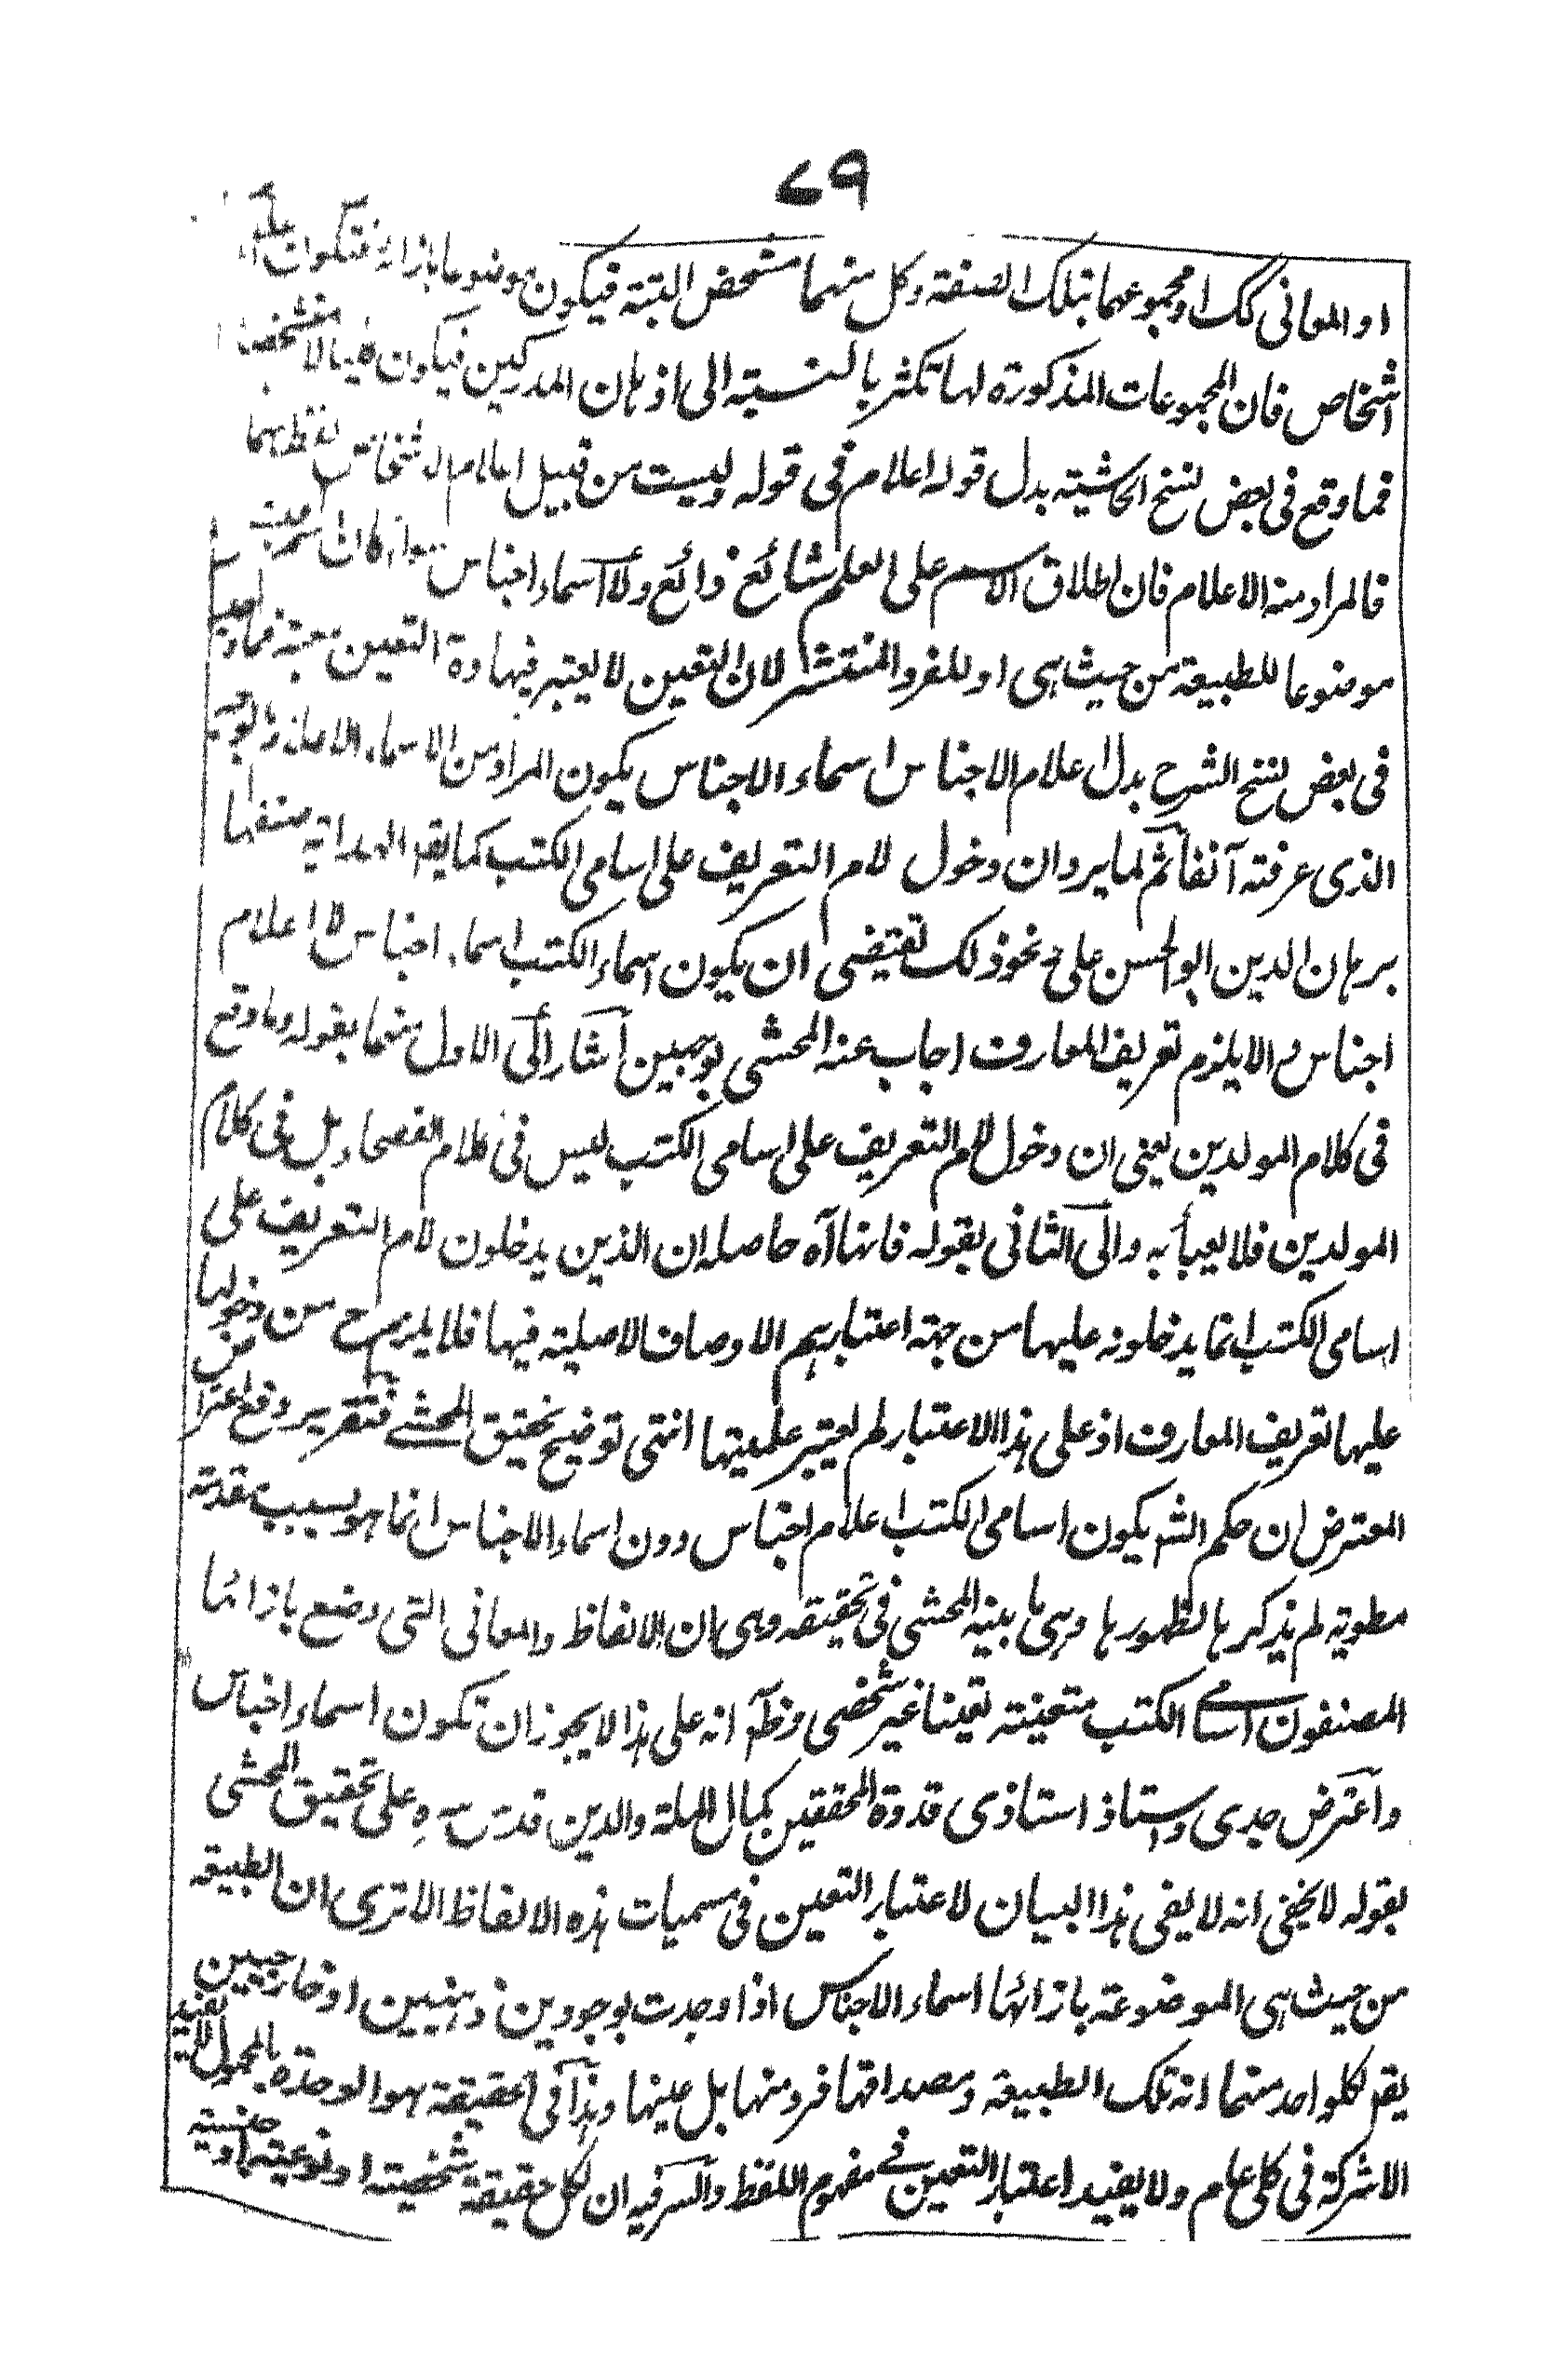 ٧٩
او المعانى كك او مجموعهما بتلك الصفة وكل منهما مشخص البتة فيكون موضوعا بازائه فتكون
اشخاص فان المجموعات المذكورة لها تكثر بالنسبة الى اذهان المدركين فيكون
فما وقع فى بعض نسخ الحاشية بدل قوله اعلام فى قوله وليست من قبيل اعلام الاشخاص لفظ اسما
فالمراد منه الاعلام فان اطلاق الاسم على العلم شائع ذائع ولا اسماء اجناس سواء كان اسم جنس
موضوعا للطبيعة من حيث هى او للفرد المنتشر لان التعين لا يعتبر فيها وة التعين معتبة فما وقع
فى بعض نسخ الشرح بدل اعلام الاجناس اسماء الاجناس يكون المراد من الاسماء الاعلام
الذى عرفته آنفا ثم لما يرد ان دخول لام التعريف على اسامى الكتب كما يقم الهداية مصنفها
برهان الدين ابو الحسن على ونحو ذلك تقيتضى ان يكون اسماء الكتب اسماء اجناس لا اعلام
اجناس والا يلزم تعريف المعارف اجاب عنه المحشى بوجهين اشار الى الاول منهما بقوله وما وقع
فى كلام المولدين يعنى ان دخول لام التعريف على اسامى الكتب ليس فى كلام الفصحاء بل فى كلام
المولدين فلا يعبأ به والى الثانى بقوله فانها آه حاصله ان الذين يدخلون لام التعريف على
اسامى الكتب انما يدخلونه عليها من جهة اعتبارهم الاوصاف الاصلية فيها فلا يلزم ح من دخولها
عليها تعريف المعارف اذ على هذا الاعتبار لم يعتبر علميتها انتهى توضيح تحقيق المحشے فتقرير دفع اعتراض
المعترض ان حكم الشه يكون اسامى الكتب اعلام اجناس دون اسماء الاجناس انما هو بسبب مقدمة
مطوية لم يذكرها لظهورها وهى ما بينه المحشى فى تحقيقه وهى ان الالفاظ والمعانى التى وضع بازائها
المصنفون اسامے الكتب متعينة تعينا غير شخصى وظهٓ انه على هذا لا يجوز ان تكون اسماء اجناس
واعترض جدى واستاذ استاذى قدوة المحققين كمال الملة والدين قدس سره على تحقيق المحشى
بقوله لا يخفى انه لا يفى هذا البيان لاعتبار التعين فى مسميات هذه الالفاظ الا ترى ان الطبيعة
من حيث هى الموضوعة بازائها اسماء الاجناس اذا وجدت بوجودين ذهنيين او خارجيين
يقم لكلواحد منهما انه تلك الطبيعة ومصداقها فرد منها بل عينها وهذا فى الحقيقة هو الوحدة بالمحمول لا يفيد
الاشركة فى كلى عام ولا يفيد اعتبار التعين فے مفهوم اللفظ والسر فيه ان لكل حقيقة شخصية او نوعية او جنسية